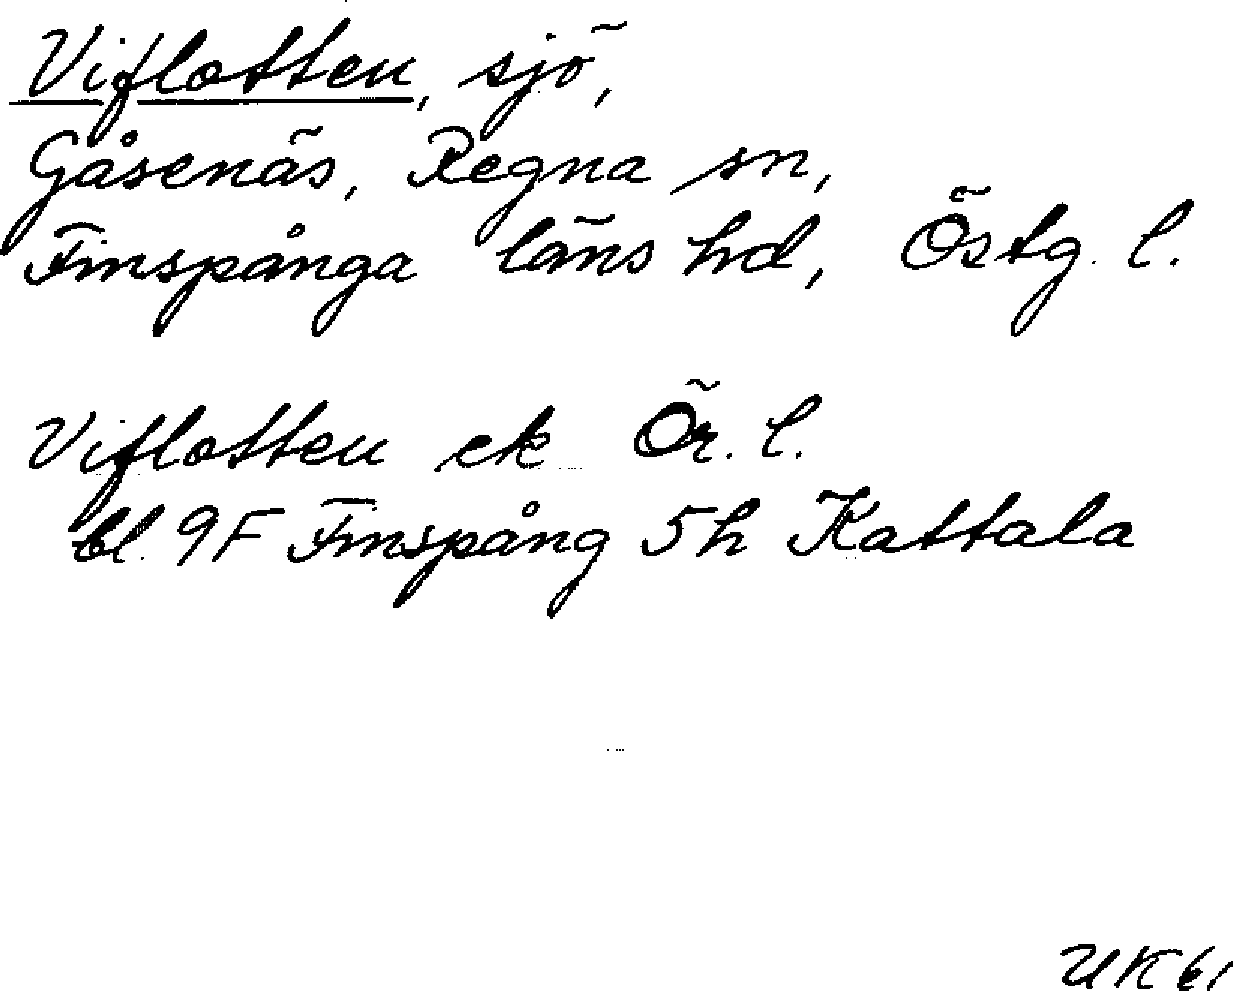 Viflotten, sjö,
Gåsenäs, Regna sn,
Finspånga läns hd, Östg. l.
Viflotten ek Ör. l.
bl. 9F Finspång 5h Kattala
UK 61